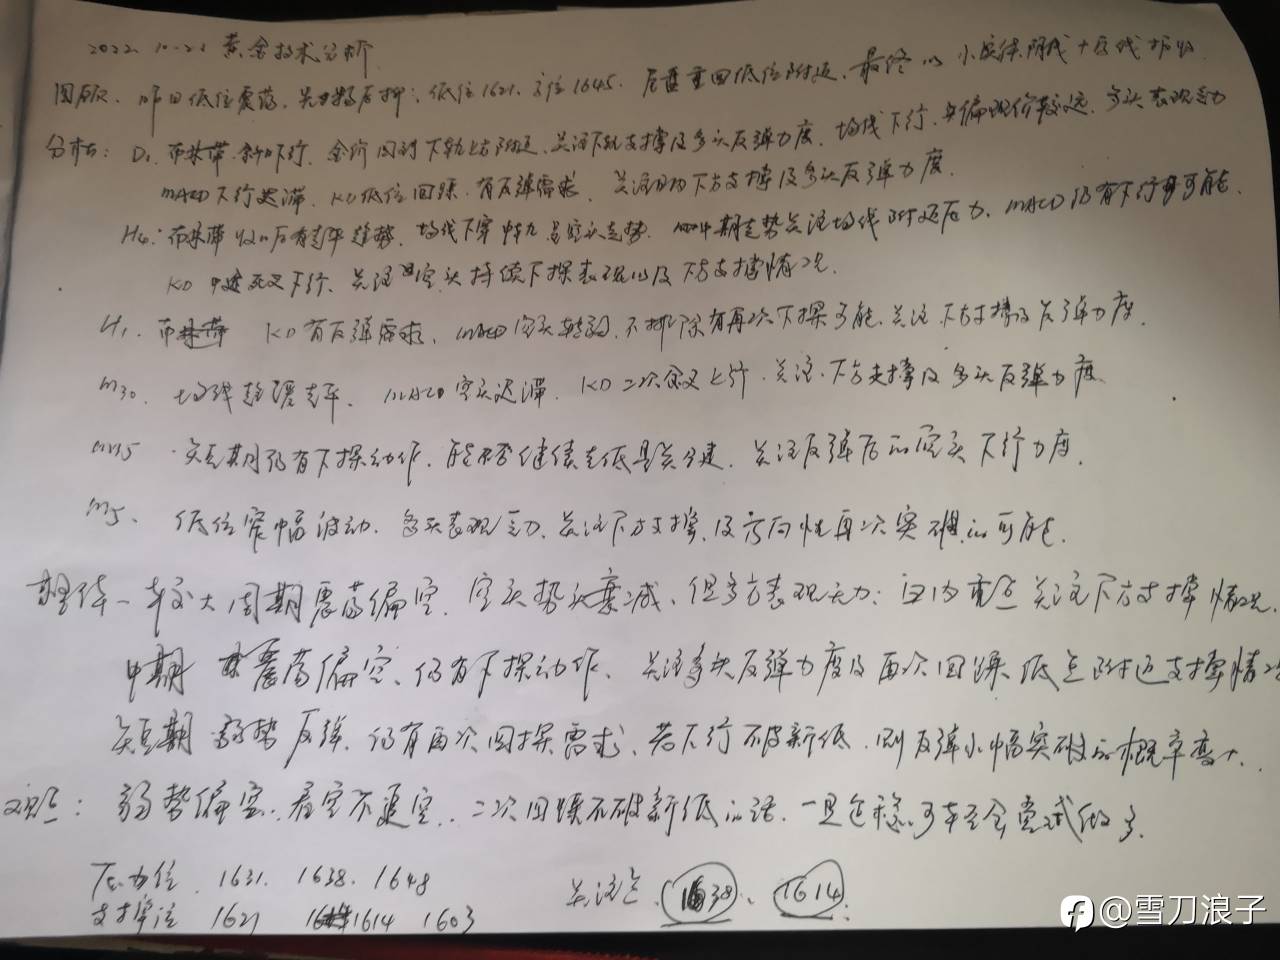 2022.10.21 黄金技术分析
回顾、昨日低位震荡，先扬后抑，低位1621，高位1645．尾盘重回低位附近，最终以小实体阴线十字线报收
分析：D1 布林带斜口下行，金价回到下轨上方附近，关注下轨支撑及多头反弹力度，均线下行，且偏现价较远，多头表现乏力
MACD下行迟滞，KD低位回踩，有反弹需求，关注日内下方支撑及多头反弹力度．
H4：布林带收口后有走平趋势，均线下穿中轨呈空头走势，四小时期走势关注均线附近压力，MACD仍有下行可能
KD中途死叉下行，关注空头持续下探表现以及下方支撑情况．
H1．布林带 KD有反弹需求，MACD空头转弱，不排除有再次下探可能，关注下方支撑及反弹力度．
M30．均线趋缓走平、MACD空头迟滞．KD二次金叉上行．关注下方支撑及多头反弹力度
M15 实短期仍有下探动作，能否继续走低是关键．关注反弹后的空头下行力度．
M5．低位窄幅波动．多头表现乏力．关注下方支撑，及方向性再次突破的可能．
整体一较大周期震荡偏空，空头势头衰减，但多方表现无力；日内重点关注下方支撑情况．
中期 震荡偏空、仍有下探动作、关注多头反弹力度及再次回踩低点附近支撑情况
短期 弱势反弹，仍有再次回探需求，若下行不破新低．则反弹小幅突破的概率变大．
观点：弱势偏空，看空不追空．二次回踩不破新低的话．一旦企稳，可轻仓尝试做多．
压力位．1631． 1638． 1648
支撑位 1621 1614 1603
关注点 1638、1614．
@雪刀浪子